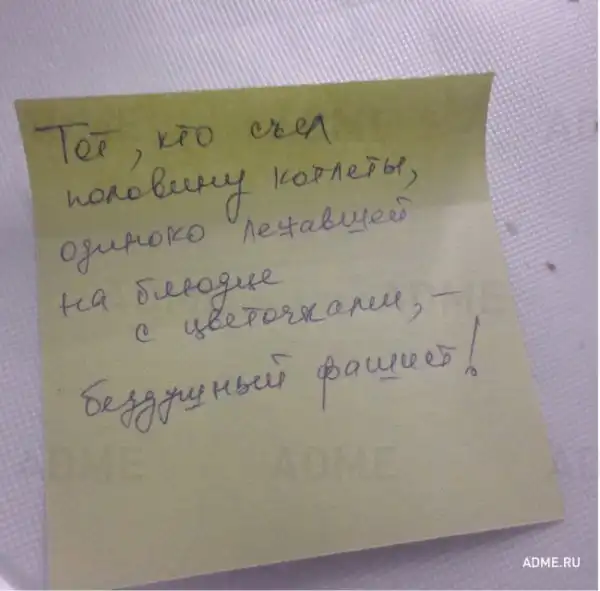 Тот, кто съел
половину котлеты,
одиноко лежавшей
на блюдце
с цветочками, –
бездушный фашист!
ADME
ADME
ADME
ADME.RU